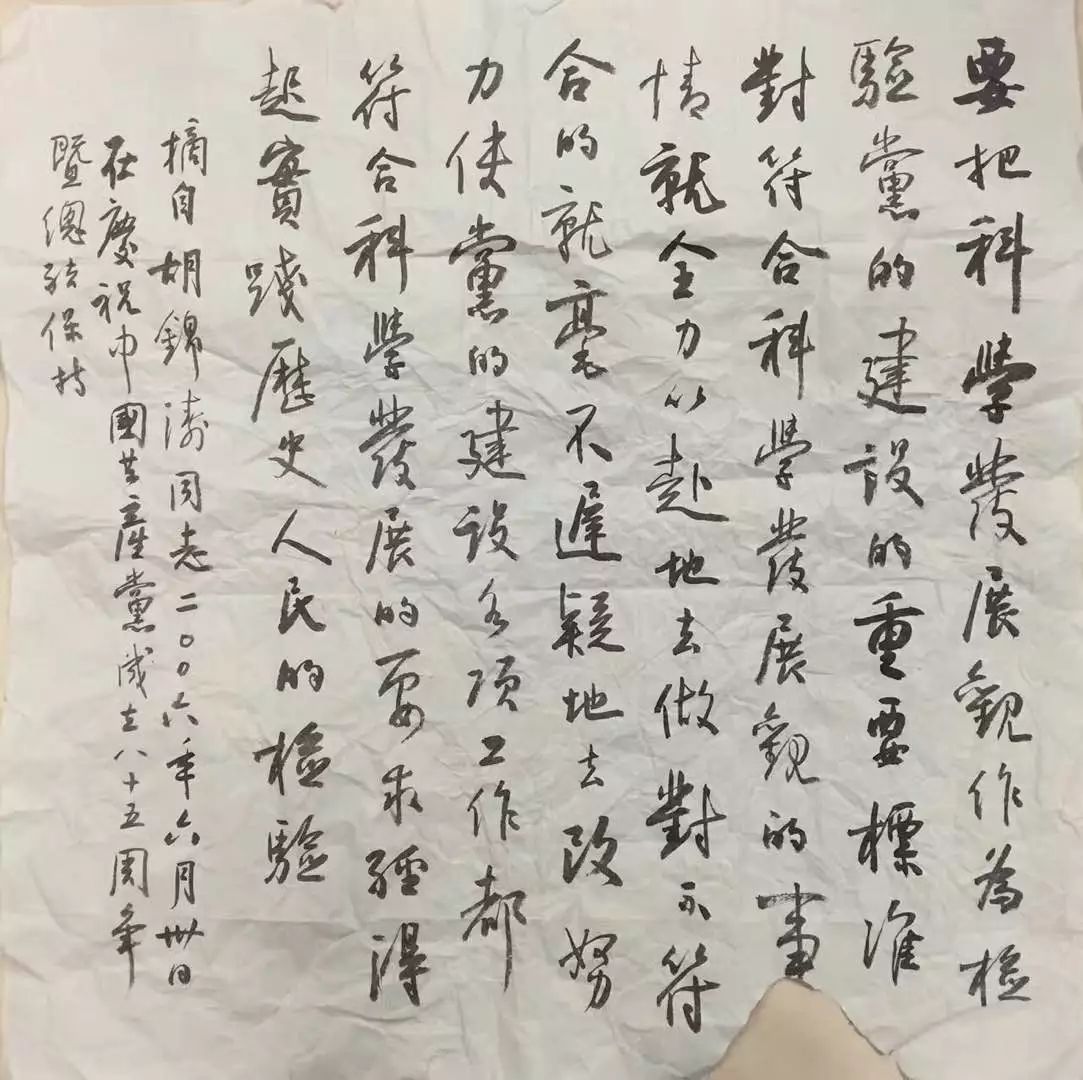 要把科學發展觀作為檢
驗黨的建設的重要標准
對符合科學發展觀的事
情就全力以赴地去做對不符
合的就毫不遲疑地去改努
力使黨的建設各項工作都
符合科學發展的要求經得
起實踐歷史人民的檢驗
摘自胡錦濤同志二〇〇六年六月卅日
在慶祝中國共產黨成立八十五周年
暨總結保持